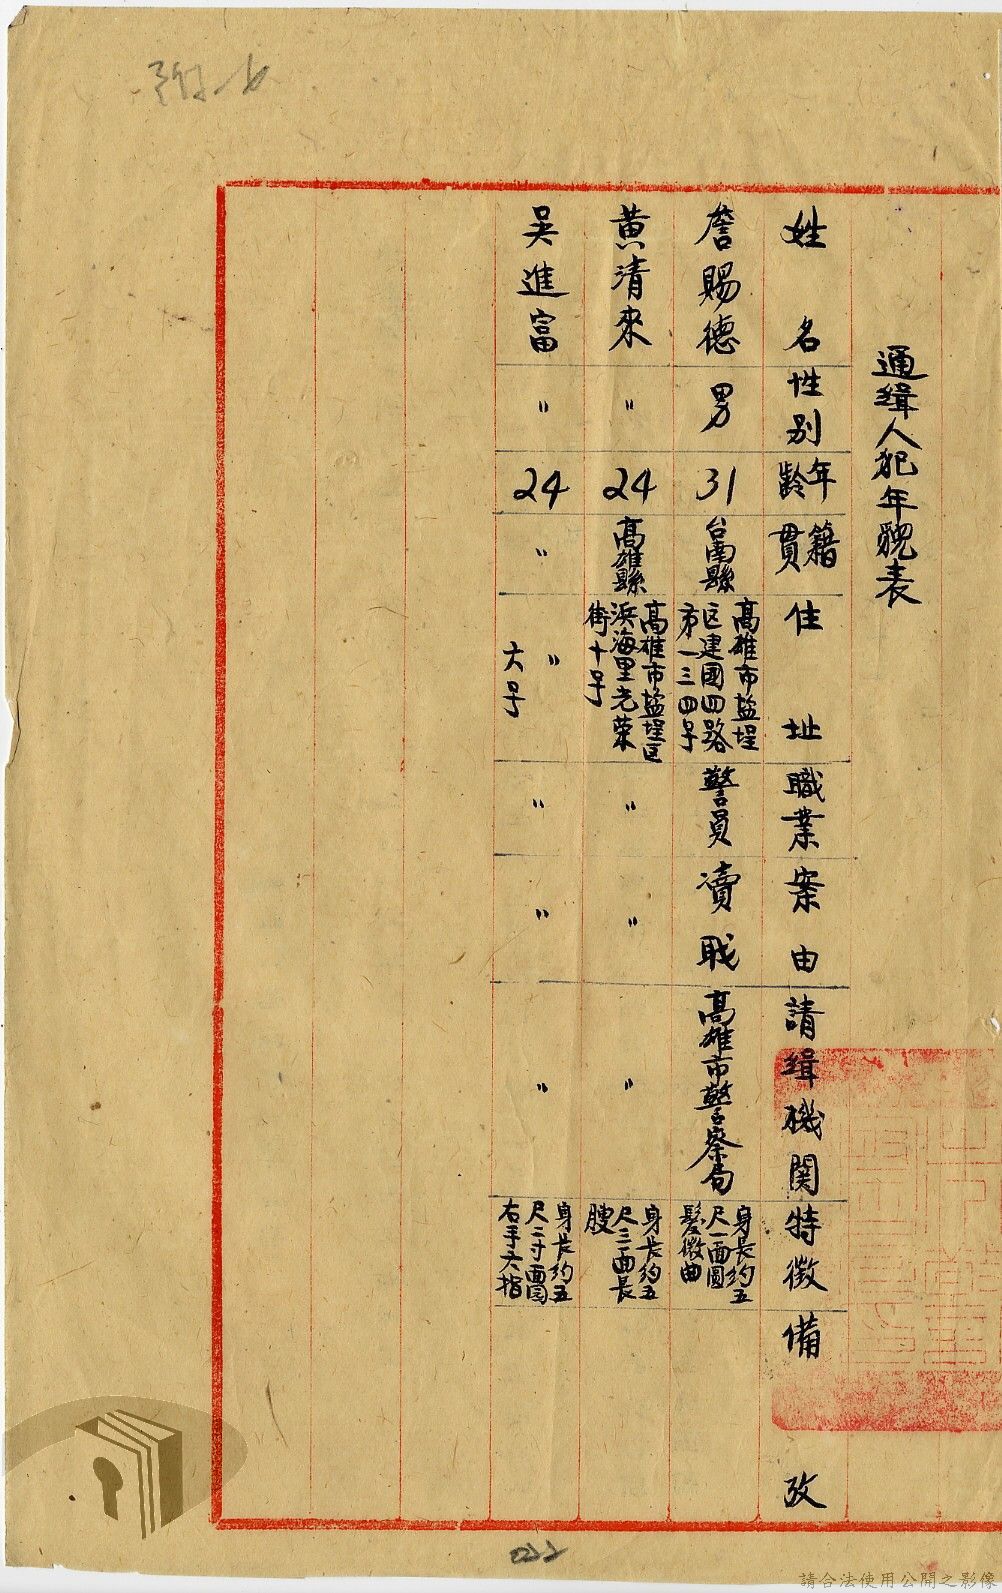 附六
通緝人犯年貌表
姓名 性別 年齡 籍貫 住址 職業 案由 請緝機関 特徵 備攷
詹賜德 男 31 台南縣 高雄市塩埕区建國四路市一三四号 警員 瀆職 高雄市警察局 身長約五尺一面圓髮微曲
黃清來 〃 24 高雄縣 高雄市塩埕區浜海里光荣街十号 〃 〃 〃 身长約五尺三面長瘦
吳進富 〃 24 〃 〃 六号 〃 〃 〃 身长約五尺二寸面圓右手六指
022
請合法使用公開之影像